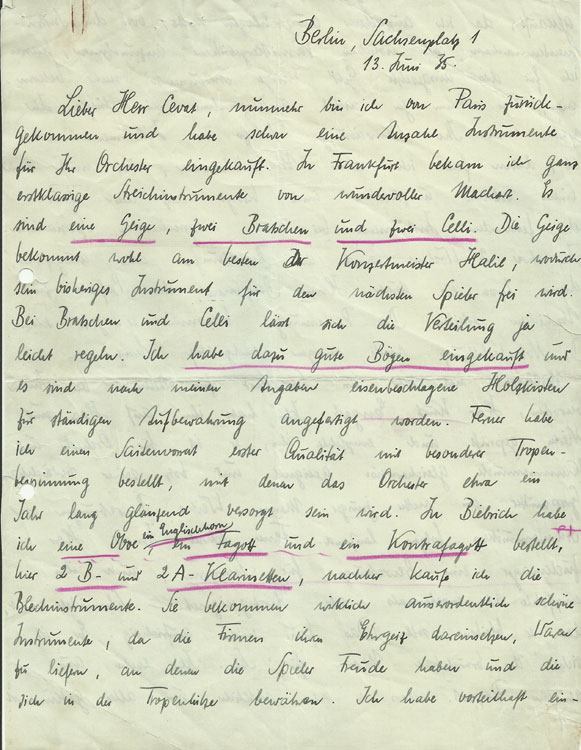 Berlin, Sachsenplatz 1
13. Juni 35.
Lieber Herr Cevat, nunmehr bin ich von Paris zurück-
gekommen und habe schon eine Anzahl Instrumente
für Ihr Orchester eingekauft. In Frankfurt bekam ich ganz
erstklassige Streichinstrumente von wundervoller Machart. Es
sind eine Geige, zwei Bratschen und zwei Celli. Die Geige
bekommt wohl am besten der Konzertmeister Halil, wodurch
sein bisheriges Instrument für den nächsten Spieler frei wird.
Bei Bratschen und Celli lässt sich die Verteilung ja
leicht regeln. Ich habe dazu gute Bögen eingekauft und
es sind nach meinen Angaben eisenbeschlagene Holzkisten
für ständigen Aufbewahrung angefertigt worden. Ferner habe
ich einen Saitenvorrat erster Qualität mit besonderer Tropen-
bespinnung bestellt, mit denen das Orchester etwa ein
Jahr lang glänzend versorgt sein wird. In Biebrich habe
ich eine Oboe, ein Englischhorn, ein Fagott und ein Kontrafagott bestellt,
hier 2 B- und 2 A-Klarinetten, nachher kaufe ich die
Blechinstrumente. Sie bekommen wirklich ausserordentlich schöne
Instrumente, da die Firmen ihren Ehrgeiz dareinsetzen, Waren
zu liefern, an denen die Spieler Freude haben und die
sich in der Tropenhitze bewähren. Ich habe vorteilhaft ein-